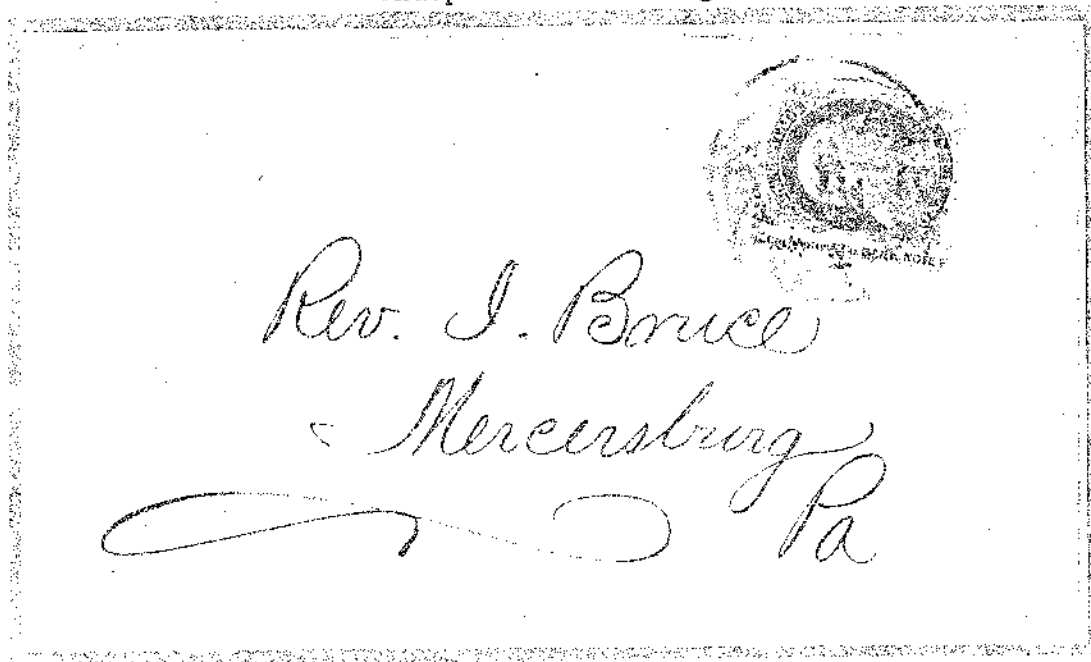 Rev. I. Bruce
Mercersburg
Pa